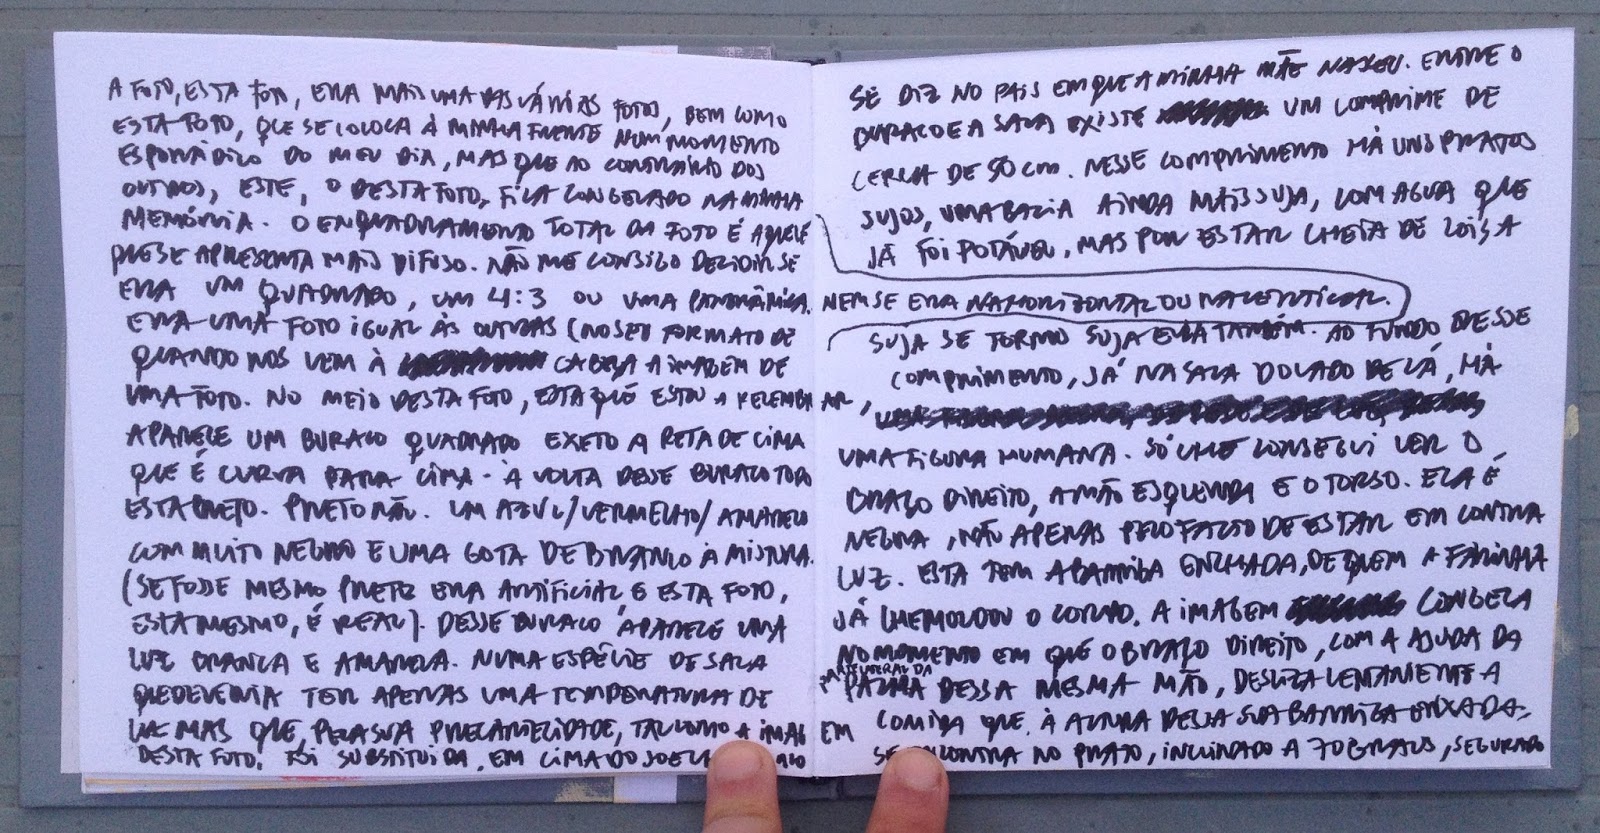 A FOTO, ESTA FOTO, ERA MAIS UMA DAS VÁRIAS FOTOS, BEM COMO
ESTA FOTO, QUE SE COLOCA À MINHA FRENTE NUM MOMENTO
ESPORÁDICO DO MEU DIA, MAS QUE AO CONTRÁRIO DOS
OUTROS, ESTE, O DESTA FOTO, FICA CONGELADO NA MINHA
MEMÓRIA. O ENQUADRAMENTO TOTAL DA FOTO É AQUELE
QUE SE APRESENTA MAIS DIFUSO. NÃO ME CONSIGO DECIDIR SE
ERA UM QUADRADO, UM 4:3 OU UMA PANORÂMICA. NEM SE ERA NA HORIZONTAL OU NA VERTICAL.
ERA UMA FOTO IGUAL ÀS OUTRAS (NO SEU FORMATO DE
QUANDO NOS VEM À CABEÇA A IMAGEM DE
UMA FOTO. NO MEIO DESTA FOTO, ESTA QUE ESTOU A RELEMBRAR,
APARECE UM BURACO QUADRADO EXETO A RETA DE CIMA
QUE É CURVA PARA CIMA. À VOLTA DESSE BURACO TUDO
ESTA PRETO. PRETO NÃO. UM AZUL/VERMELHO/AMARELO
COM MUITO NEGRO E UMA GOTA DE BRANCO À MISTURA.
(SE FOSSE MESMO PRETO ERA ARTIFICIAL E ESTA FOTO,
ESTA MESMO, É REAL). DESSE BURACO APARECE UMA
LUZ BRANCA E AMARELA. NUMA ESPÉCIE DE SALA
QUE DEVERIA TER APENAS UMA TEMPERATURA DE
LUZ MAS QUE, PELA SUA PRECARIEDADE, TAL COMO A IMAGEM
DESTA FOTO, FOI SUBSTITUIDA. EM CIMA DO
SE DIZ NO PAIS EM QUE A MINHA MÃE NASCEU. ENTRE O
BURACO E A SALA EXISTE UM COMPRIME DE
CERCA DE 50 cm. NESSE COMPRIMENTO HÁ UNS PRATOS
SUJOS, UMA BACIA AINDA MAIS SUJA, COM AGUA QUE
JÁ FOI POTÁVEL, MAS POR ESTAR CHEIA DE LOIÇA
SUJA SE TORNO SUJA ELA TAMBÉM. AO FUNDO DESSE
COMPRIMENTO, JÁ NA SALA DO LADO DE LÁ, HÁ
UMA FIGURA HUMANA. SÓ LHE CONSEGUI VER O
BRAÇO DIREITO, A MÃO ESQUERDA E O TORSO. ELA É
NEGRA, NÃO APENAS PELO FACTO DE ESTAR EM CONTRA
LUZ. ESTA TEM A BARRIGA ENCHADA, DE QUEM A FARINHA
JÁ LHE MOLDOU O CORPO. A IMAGEM CONGELA
NO MOMENTO EM QUE O BRAÇO DIREITO, COM A AJUDA DA
PARTE LATERAL DA
PALMA DESSA MESMA MÃO, DESLIZA LENTAMENTE A
COMIDA QUE. À ALTURA DESSA SUA BARRIGA ENXADA,
SE ENCONTRA NO PRATO, INCLINADO A 70 GRAUS, SEGURADO